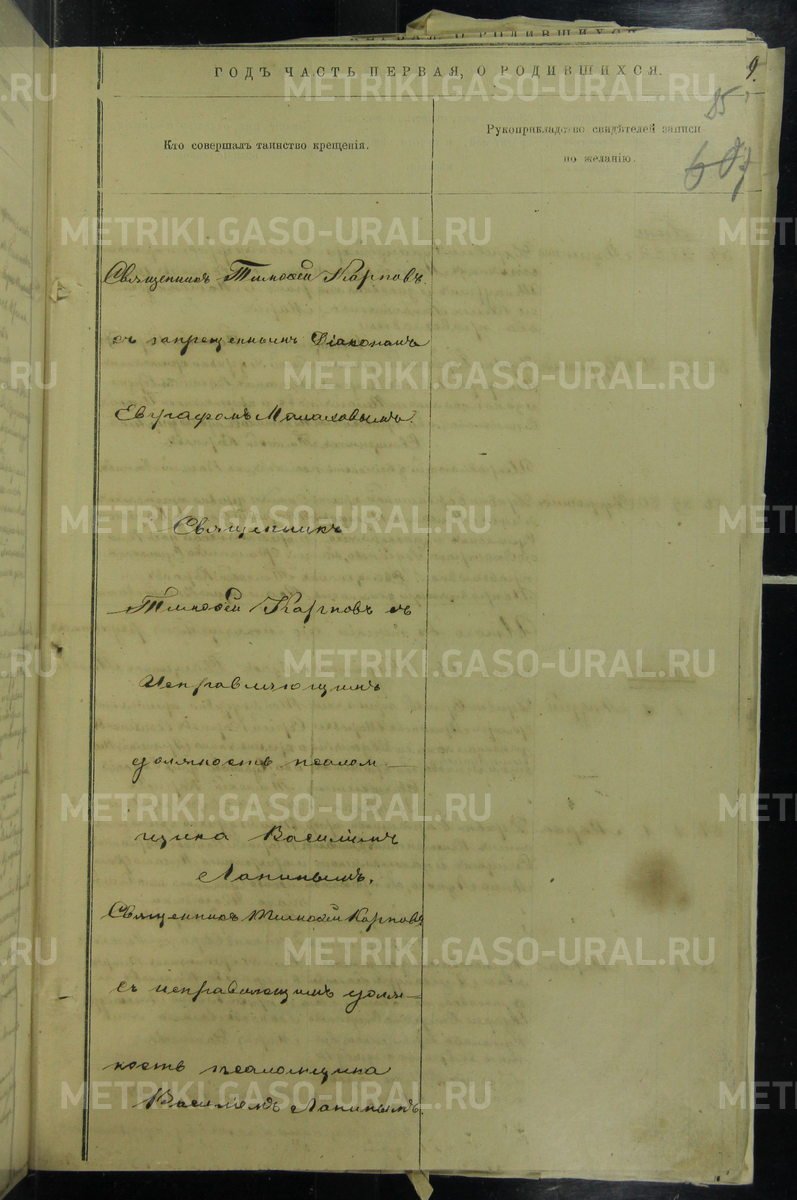 ГОДЪ ЧАСТЬ ПЕРВАЯ, О РОДИВШИХСЯ.
9.
85
Кто совершалъ таинство крещенія.
Рукоприкладство свидѣтелей записи
по желанію.
Священникъ Тимоѳей Карповъ
съ запрещеннымъ Діакономъ
Евграфомъ Малаховымъ.
Священникъ
Тимоѳей Карповъ съ
Исправляющимъ
должность псалом-
щика Василіемъ
Лапинымъ.
Священникъ Тимоѳей Карповъ
съ исправляющимъ долж-
ность псаломщика
Василіемъ Лапинымъ.
METRIKI.GASO-URAL.RU